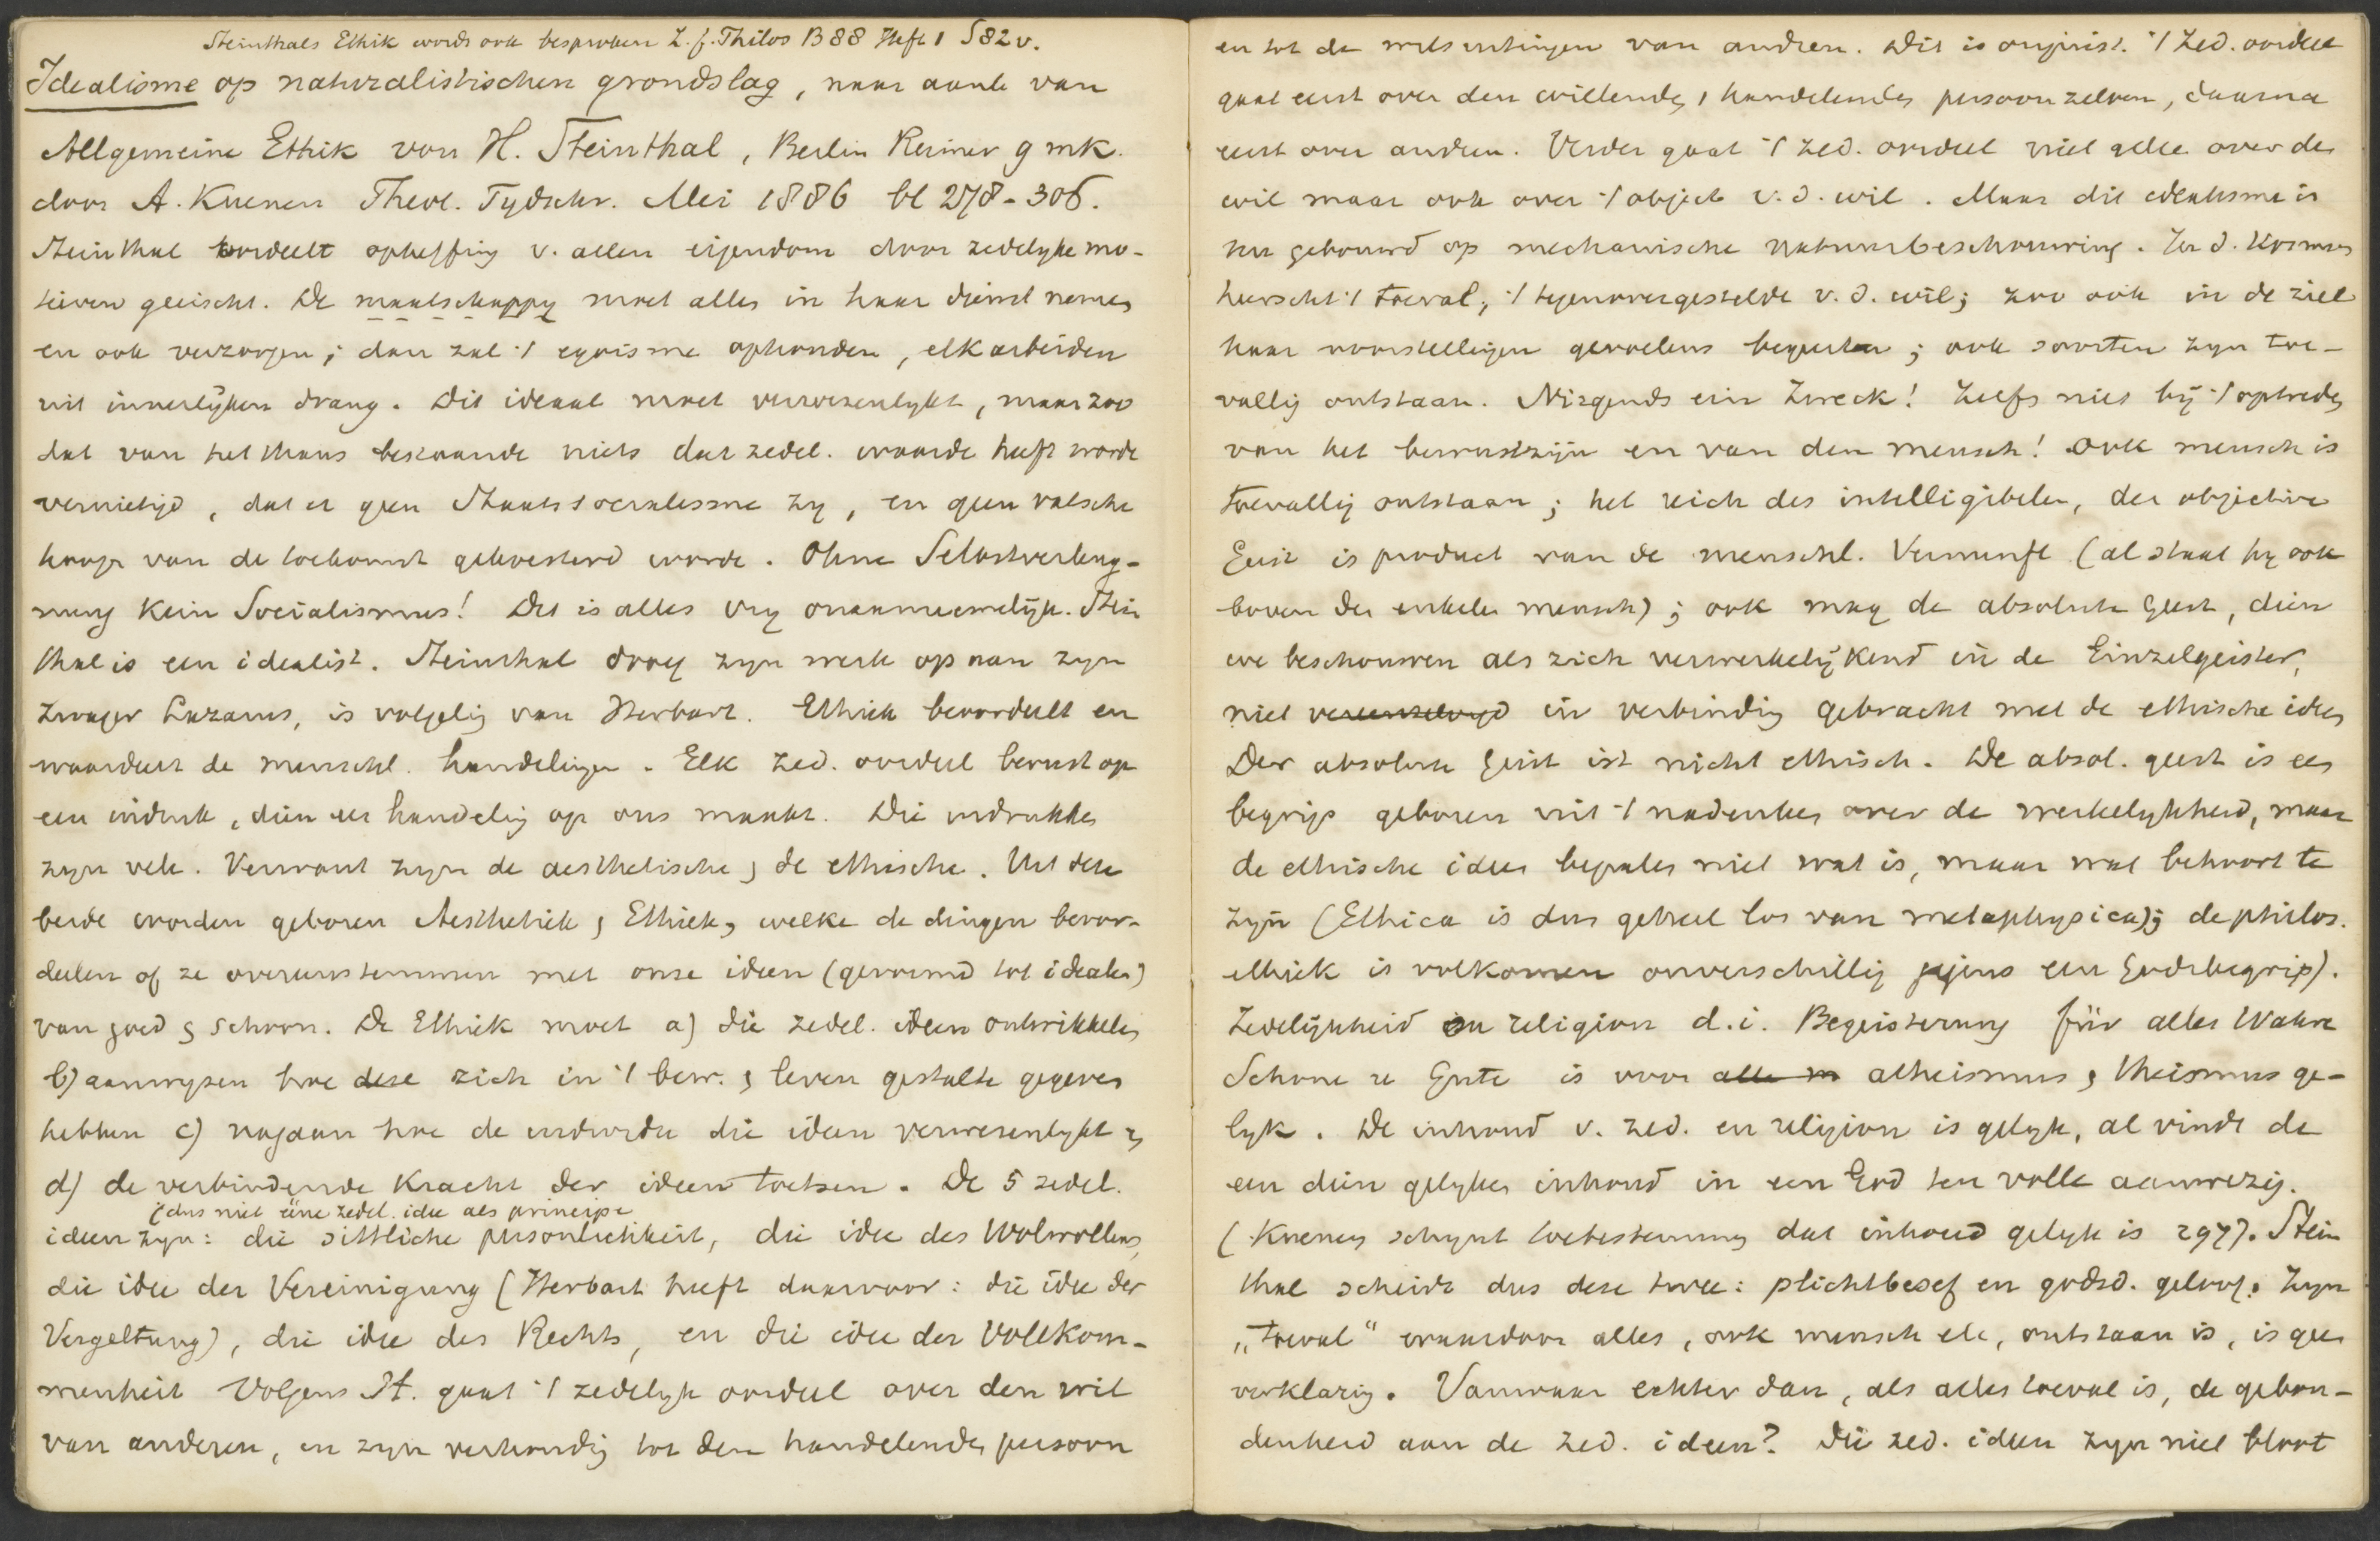 Steinthals Ethik wordt ook besproken Z. f. Philos B 88 Heft 1 S82 v.
Idealisme op naturalistischen grondslag, naar aanl van
Allgemeine Ethik von H. Steinthal, Berlin Reimer 9 mk.
door A. Kuenen Theol. Tydschr. Mei 1886 bl 278-306.
Steinthal oordeelt opheffing v. allen eigendom door zedelyke mo-
tieven geëischt. De maatschappy moet alles in haar dienst nemen
en ook verzorgen; dan zal 't egoisme ophouden, elk arbeiden
uit innerlijken drang. Dit ideaal moet verwezenlykt, maar zoo
dat van het thans bestaande niets dat zedel. waarde heeft worde
vernietigd, dat er geen Staatssocialisme zy, en geen valsche
hoop van de toekomst gekoesterd worde. Ohne Selbstverleug-
nung Kein Socialismus! Dit is alles vry onaannemelijk. Stein
thal is een idealist. Steinthal droeg zyn werk op aan zyn
zwager Lazarus, is volgelig van Herbart. Ethiek beoordeelt en
waardeert de menschel. handelingen. Elk zed. oordeel berust op
een indruk, dien een handelig op ons maakt. Die indrukken
zyn vele. Verwant zyn de aesthetische & de ethische. Uit deze
beide worden geboren Aesthetiek & Ethiek, welke de dingen beoor-
deelen of ze overeenstemmen met onze ideen (gevormd tot idealen)
van goed & schoon. De Ethiek moet a) die zedel. ideen ontwikkelen
b) aanwyzen hoe deze zich in 't bew. & leven gestalte gegeven
hebben c) nagaan hoe de individu die ideen verwezenlykt &
d) de verbindende Kracht der ideen toetsen. De 5 zedel.
(dus niet ééne zedel. idee als principe
ideen zyn: die sittliche persönlichkeit, die idee des Wolwollens,
die idee der Vereinigung (Herbart heeft daarvoor: die idee der
Vergeltung), die idee des Rechts, en die idee der Vollkom-
menheit Volgens St. gaat 't zedelyk oordeel over den wil
van anderen, en zyn verhoudig tot den handelenden persoon
en tot de wilsuitingen van andren. Dit is onjuist. 't Zed. oordeel
gaat eerst over den willende, & handelenden persoon zelven, daarna
eerst over andren. Verder gaat 't zed. oordeel niet alleen over den
wil maar ook over 't object v. d. wil. Maar dit idealisme is
nu gebouwd op mechanische natuurbeschouwing. In d. Kosmos
heerscht 't toeval, 't tegenovergestelde v. d. wil; zoo ook in de ziel
haar voorstellingen gevoelens begeerten; ook soorten zyn toe-
vallig ontstaan. Nirgends ein Zweck! Zelfs niet bij 't optreden
van het bewustzijn en van den mensch! Ook mensch is
toevallig ontstaan; het reich des intelligibelen, der objective
Geist is product van de menschel. Vernunft (al staat hy ook
boven den enkelen mensch); ook mag de absolute geest, dien
we beschouwen als zich verwerkelijkend in de Einzelgeister,
niet vereenzelvigd in verbindig gebracht met de ethische ideen
Der absolute Geist ist nicht ethisch. De absol. geest is een
begrip geboren uit 't nadenken over de werkelykheid, maar
de ethische ideen bepalen niet wat is, maar wat behoort te
zijn (Ethica is dus geheel los van metaphysica); de philos.
ethiek is volkomen onverschillig jegens een Godsbegrip).
Zedelijkheid en religion d.i. Begeisterung für alles Wahre
Schone u Gute is voor alle m atheismus & theismus ge-
lyk. De inhoud v. zed. en religion is gelyk, al vindt de
een dien gelyken inhoud in een God ten volle aanwezig.
(Kuenen schynt toetestemmen dat inhoud gelyk is 297). Stein
thal scheidt dus deze twee: plichtbesef en godsd. geloof. Zyn
„toeval" waardoor alles, ook mensch etc, ontstaan is, is geen
verklarig. Vanwaar echter dan, als alles toeval is, de gebon-
denheid aan de zed. ideen? Die zed. ideen zyn niet bloot